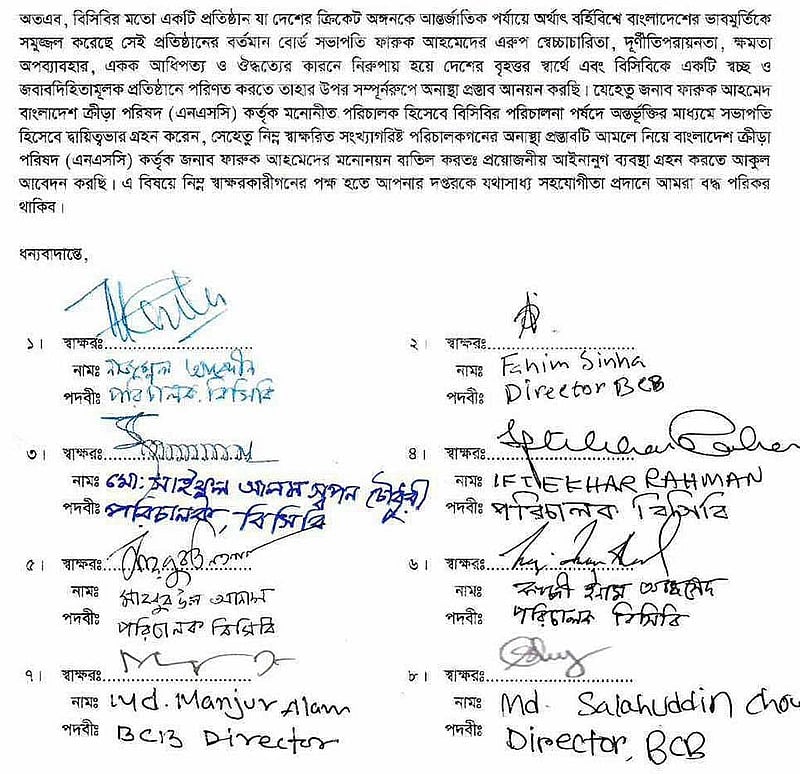 অতএব, বিসিবির মতো একটি প্রতিষ্ঠান যা দেশের ক্রিকেট অঙ্গনকে আন্তর্জাতিক পর্যায়ে অর্থাৎ বর্হিবিশ্বে বাংলাদেশের ভাবমুর্তিকে
সমুজ্জল করেছে সেই প্রতিষ্ঠানের বর্তমান বোর্ড সভাপতি ফারুক আহমেদের এরুপ স্বেচ্চাচারিতা, দূর্ণীতিপরায়নতা, ক্ষমতা
অপব্যাবহার, একক আধিপত্য ও ঔদ্ধত্যের কারনে নিরুপায় হয়ে দেশের বৃহত্তর স্বার্থে এবং বিসিবিকে একটি স্বচ্ছ ও
জবাবদিহিতামূলক প্রতিষ্ঠানে পরিণত করতে তাহার উপর সম্পূর্নরুপে অনাস্থা প্রস্তাব আনয়ন করছি। যেহেতু জনাব ফারুক আহমেদ
বাংলাদেশ ক্রীড়া পরিষদ (এনএসসি) কর্তৃক মনোনীত পরিচালক হিসেবে বিসিবির পরিচালনা পর্ষদে অন্তর্ভূক্তির মাধ্যমে সভাপতি
হিসেবে দ্বায়িত্বভার গ্রহন করেন, সেহেতু নিম্ন স্বাক্ষরিত সংখ্যাগরিষ্ট পরিচালকগনের অনাস্থা প্রস্তাবটি আমলে নিয়ে বাংলাদেশ ক্রীড়া
পরিষদ (এনএসসি) কর্তৃক জনাব ফারুক আহমেদের মনোনয়ন বাতিল করতঃ প্রয়োজনীয় আইনানুগ ব্যবস্থা গ্রহন করতে আকুল
আবেদন করছি। এ বিষয়ে নিম্ন স্বাক্ষরকারীগনের পক্ষ হতে আপনার দপ্তরকে যথাসাধ্য সহযোগীতা প্রদানে আমরা বদ্ধ পরিকর
থাকিব।
ধন্যবাদান্তে,
১। স্বাক্ষরঃ
নামঃ নাজমুল আবেদীন
পদবীঃ পরিচালক, বিসিবি
২। স্বাক্ষরঃ
নামঃ Fahim Sinha
পদবীঃ Director BCB
৩। স্বাক্ষরঃ
নামঃ মো: সাইফুল আলম স্বপন চৌধুরী
পদবীঃ পরিচালক, বিসিবি
৪। স্বাক্ষরঃ
নামঃ IFTEKHAR RAHMAN
পদবীঃ পরিচালক বিসিবি
৫। স্বাক্ষরঃ
নামঃ মাহবুব উল আনাম
পদবীঃ পরিচালক বিসিবি
৬। স্বাক্ষরঃ
নামঃ কাজী ইনাম আহমেদ
পদবীঃ পরিচালক বিসিবি
৭। স্বাক্ষরঃ
নামঃ Md. Manjur Alam
পদবীঃ BCB Director
৮। স্বাক্ষরঃ
নামঃ Md. Salahuddin Chow
পদবীঃ Director, BCB